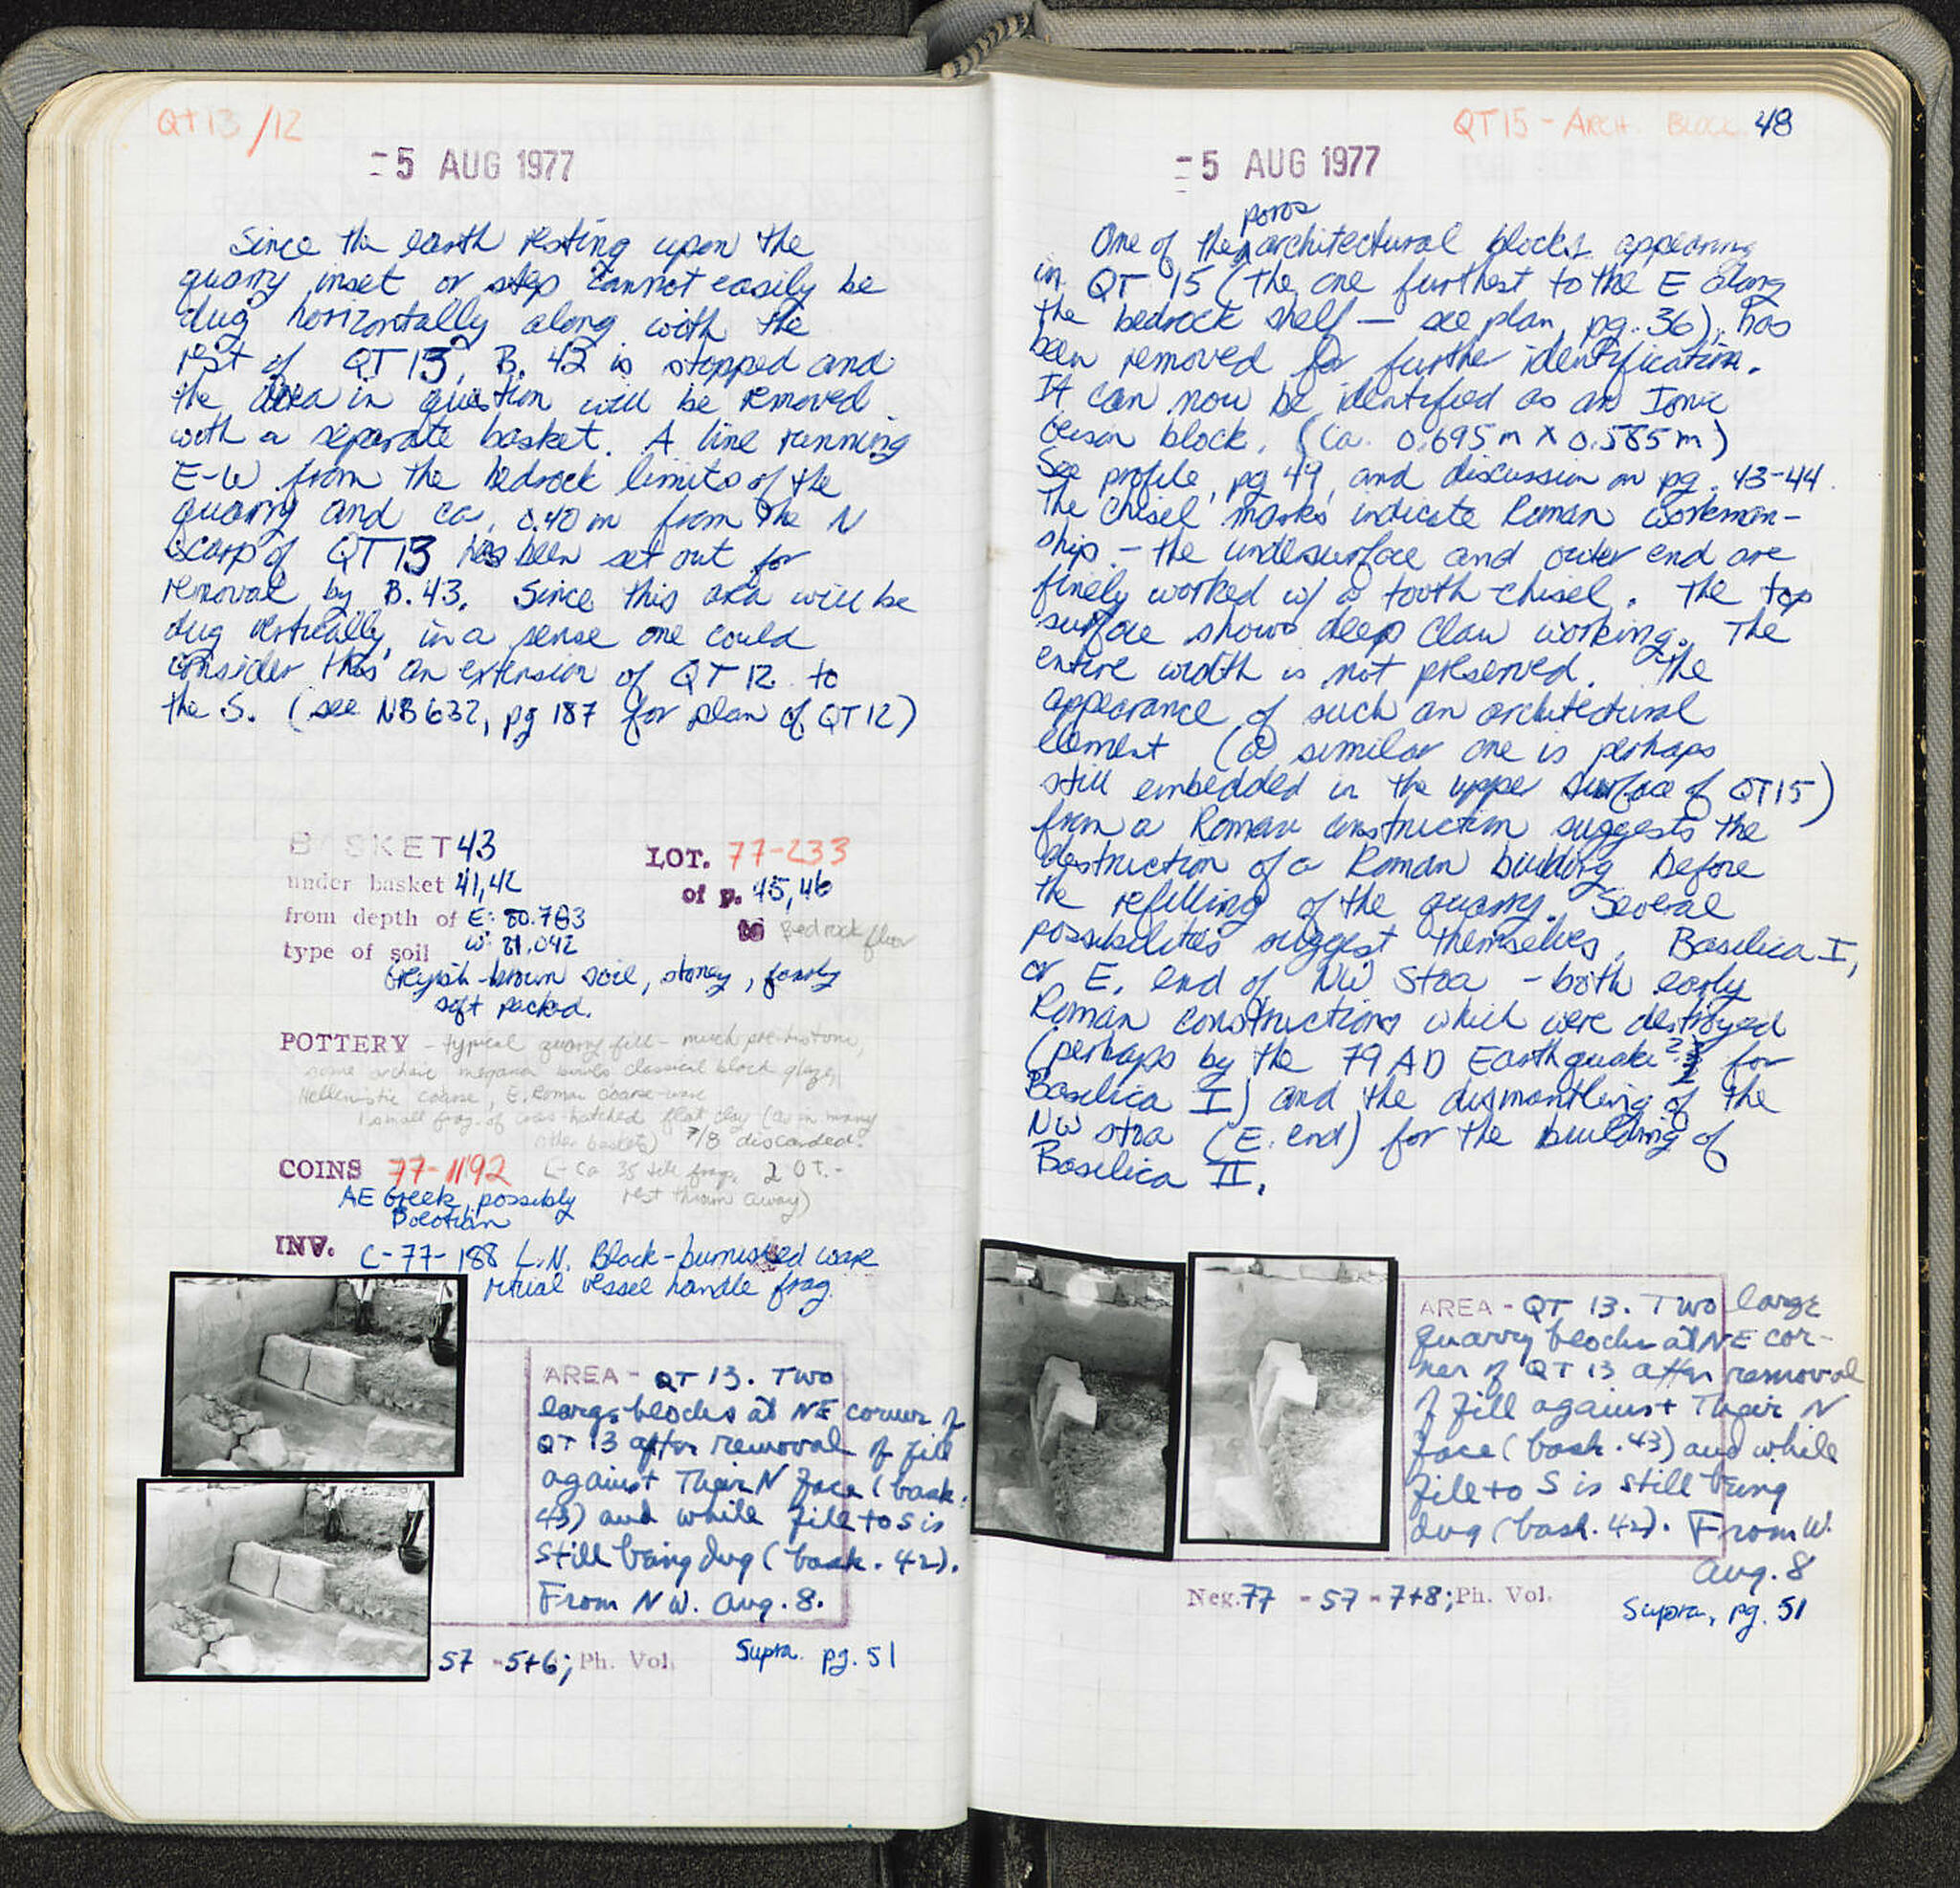 QT 13/12
5 AUG 1977
Since the earth resting upon the
quarry inset or step cannot easily be
dug horizontally along with the
rest of QT 13, B. 42 is stopped and
the area in question will be removed
with a separate basket. A line running
E-W from the bedrock limits of the
quarry and ca. 0.40 m from the N
scarp of QT 13 has been set out for
removal by B. 43. Since this area will be
dug vertically, in a sense one could
consider this an extension of QT 12 to
the S. (see NB 632, pg 187 for plan of QT 12)
BASKET 43
LOT. 77-233
under basket 41, 42
of p. 45, 46
from depth of E: 80.783
W: 81.042
to Bedrock floor
type of soil
Greyish-brown soil, stoney, fairly
soft packed.
POTTERY - typical quarry fill - much pre-historic,
some archaic classical black glaze,
Hellenistic coarse, E. Roman coarse-ware
1 small frag. of cross-hatched flat clay (as in many
other baskets) 7/8 discarded.
COINS 77-1192
(- Ca 35 tile frags. 2 OT. -
rest thrown away)
AE Greek, possibly
Boeotian
INV. C-77-188 L.N. Black-burnished ware
ritual vessel handle frag.
AREA - QT 13. Two
large blocks at NE corner of
QT 13 after removal of fill
against Their N face (bask.
43) and while fill to S is
still being dug (bask. 42).
From NW. Aug. 8.
57 - 5+6; Ph. Vol.
Supra. pg. 51
QT 15 - ARCH. BLOCK 48
5 AUG 1977
poros
One of the architectural blocks appearing
in QT 15 (the one furthest to the E along
the bedrock shelf — see plan, pg. 36), has
been removed for further identification.
It can now be identified as an Ionic
geison block. (Ca. 0.695 m X 0.585 m)
See profile, pg 49, and discussion on pg. 43-44.
The chisel marks indicate Roman workman-
ship - the undersurface and outer end are
finely worked w/ a tooth-chisel. The top
surface shows deep claw working. The
entire width is not preserved. The
appearance of such an architectural
element (a similar one is perhaps
still embedded in the upper surface of QT 15)
from a Roman construction suggests the
destruction of a Roman building before
the refilling of the quarry. Several
possibilities suggest themselves, Basilica I,
or E. end of NW Stoa - both early
Roman constructions which were destroyed
(perhaps by the 79 AD Earthquake? for
Basilica I) and the dismantling of the
NW stoa (E. end) for the building of
Basilica II.
AREA - QT 13. Two large
quarry blocks at NE cor-
ner of QT 13 after removal
of fill against Their N
face (bask. 43) and while
fill to S is still being
dug (bask. 42). From W.
Aug. 8
Neg. 77 - 57 - 7+8; Ph. Vol.
Supra, pg. 51